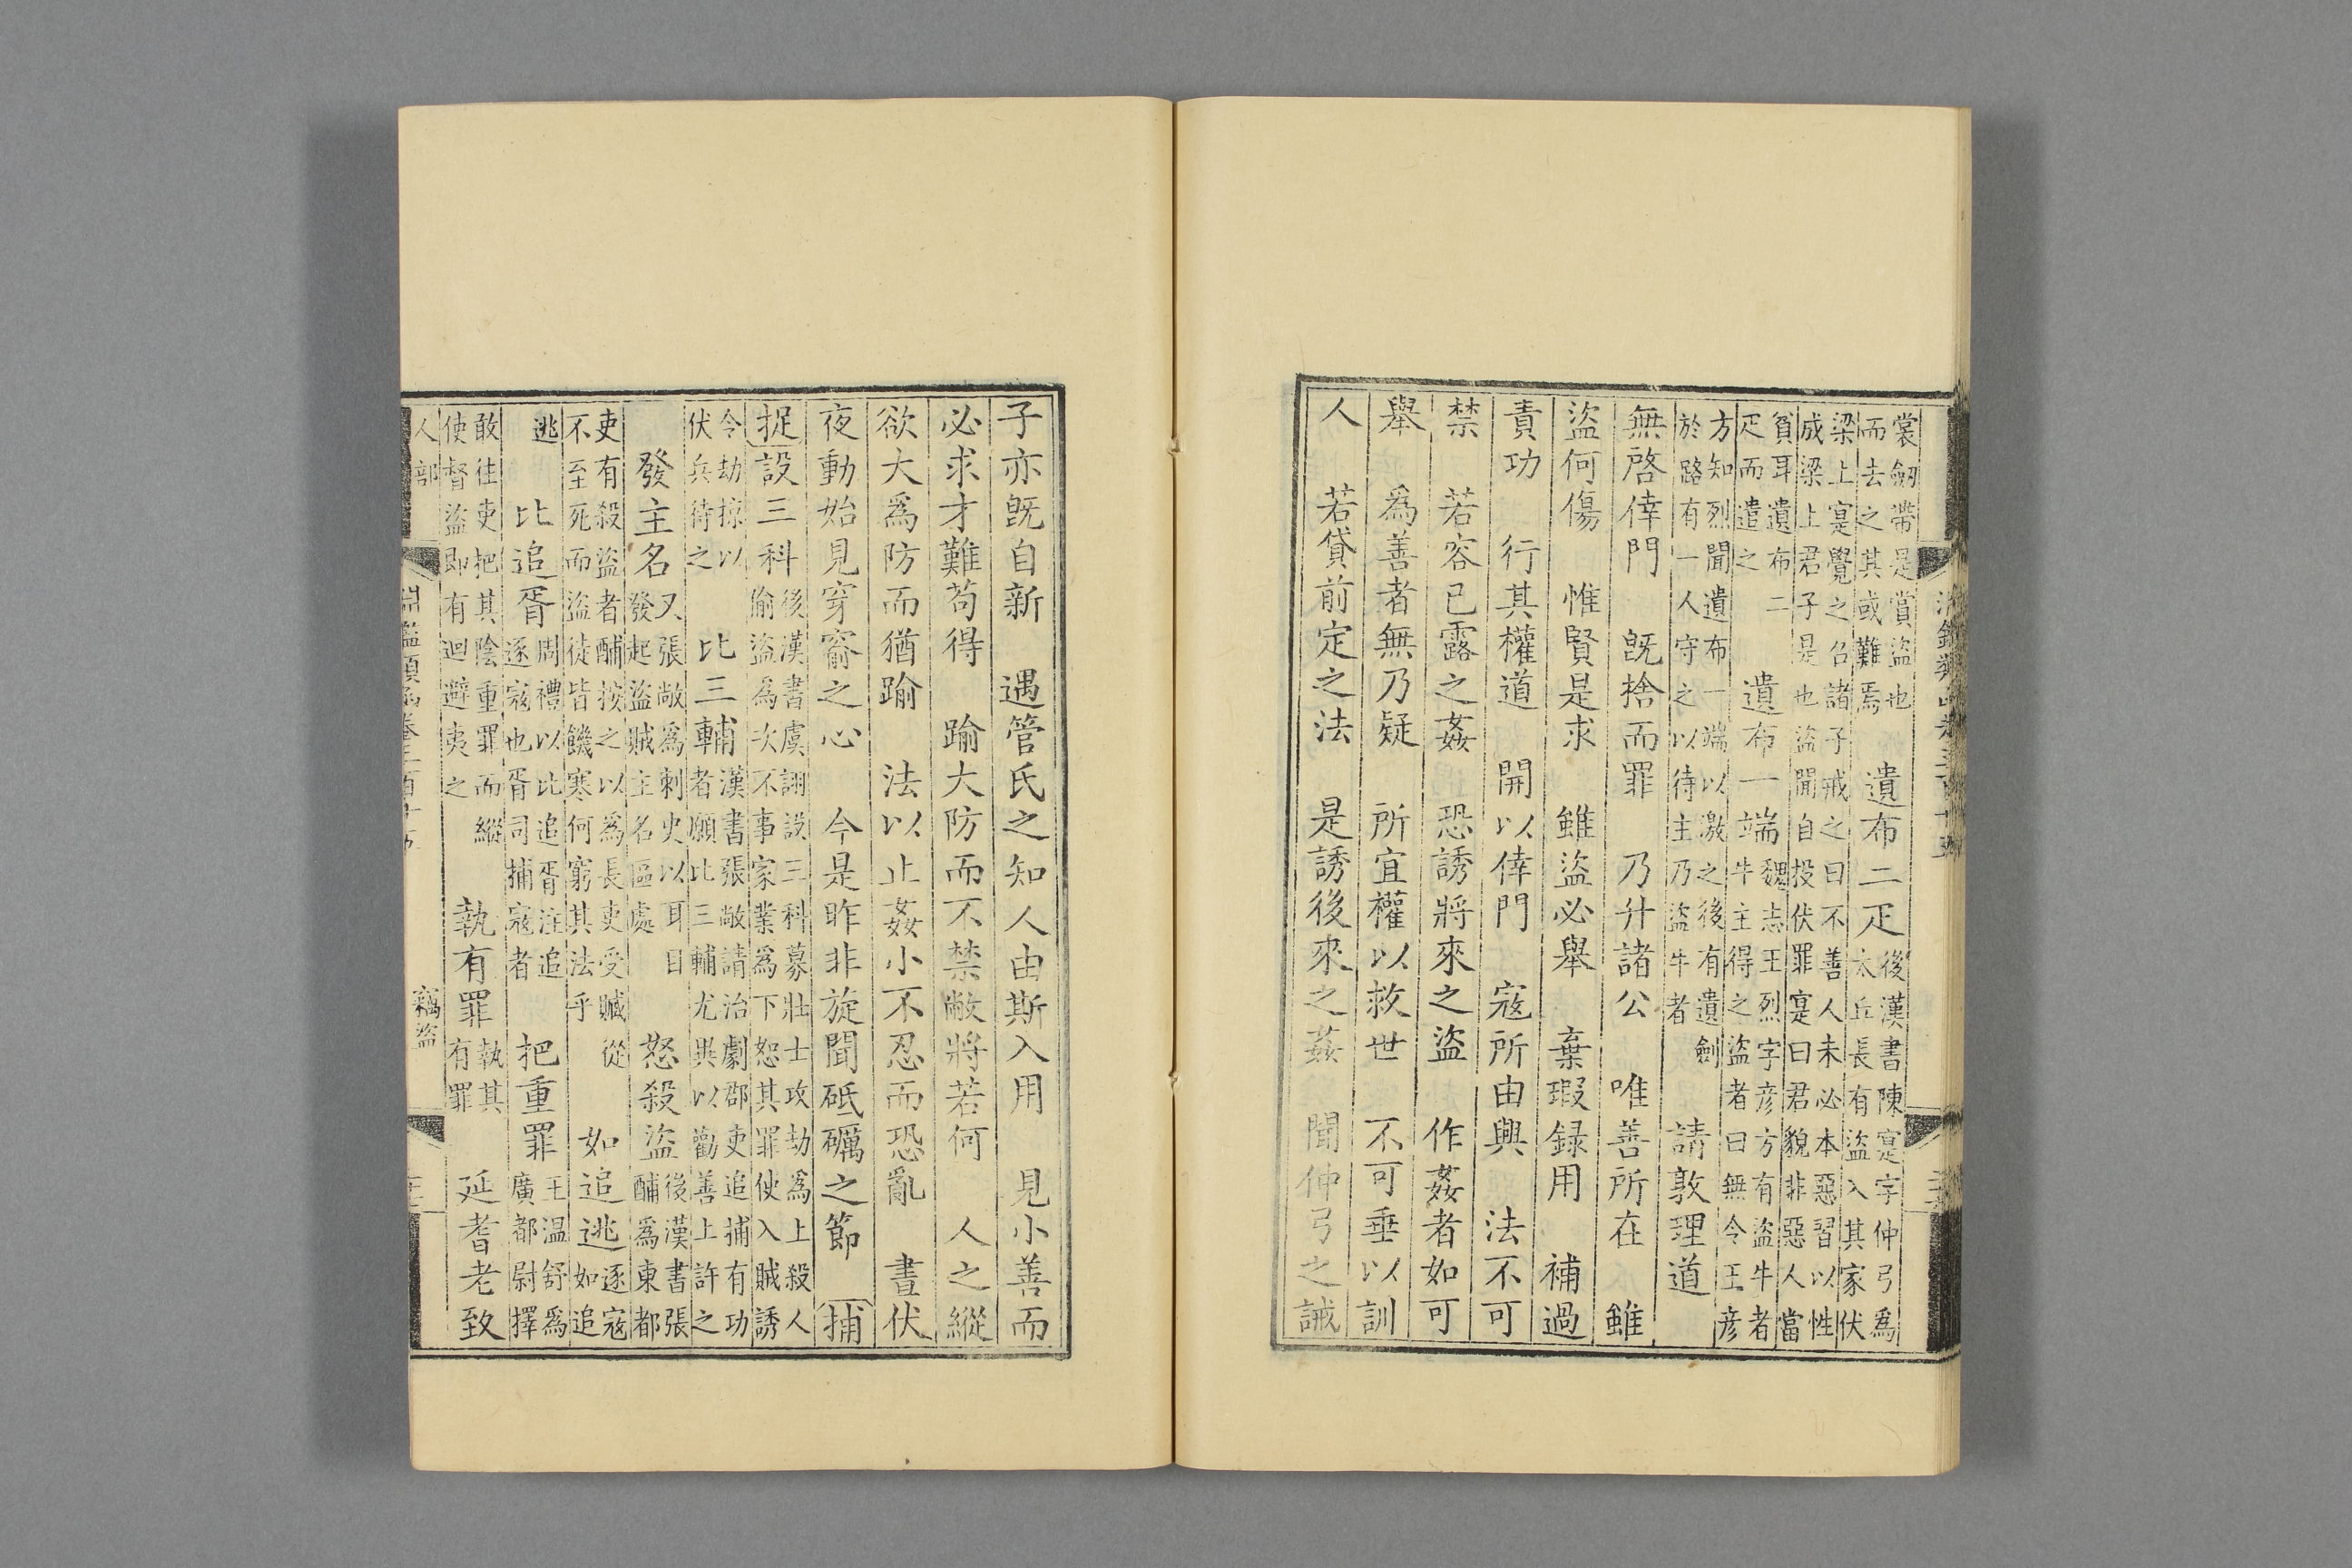 裳劒帶是賞盜也
而去之其或難焉
遺布二疋
後漢書陳寔字仲弓爲
太丘長有盜入其家伏
梁上寔覺之召諸子戒之曰不善人未必本惡習以性
成梁上君子是也盜聞自投伏罪寔曰君貌非惡人當
貧耳遺布二
疋而遣之
遺布一端
魏志王烈字彦方有盜牛者
牛主得之盜者曰無令王彦
方知烈聞遺布一端以激之後有遺劍
於路有一人守之以待主乃盜牛者
請敦理道
無啓倖門 既捨而罪 乃升諸公 唯善所在 雖
盜何傷 惟賢是求 雖盜必舉 棄瑕録用 補過
責功 行其權道 開以倖門 寇所由興 法不可
禁 若容已露之姦 恐誘將來之盜 作姦者如可
舉 爲善者無乃疑 所宜權以救世 不可垂以訓
人 若貸前定之法 是誘後來之姦 聞仲弓之誡
子亦既自新 遇管氏之知人由斯入用 見小善而
必求才難苟得 踰大防而不禁敝將若何 人之縱
欲大爲防而猶踰 法以止姦小不忍而恐亂 晝伏
夜動始見穿窬之心 今是昨非旋聞砥礪之節 捕
捉設三科
後漢書虞詡設三科募壯士攻劫爲上殺人
偷盜爲次不事家業爲下恕其罪使入賊誘
令劫掠以
伏兵待之
比三輔
漢書張敞請治劇郡吏追捕有功
者願比三輔尤異以勸善上許之
發主名
又張敞爲刺史以耳目
發起盜賊主名區處
怒殺盜
後漢書張
酺爲東都
吏有殺盜者酺按之以爲長吏受贓從
不至死而盜徒皆饑寒何窮其法乎
如追逃
逐寇
如追
逃
比追胥
周禮以比追胥注追
逐寇也胥司捕寇者
把重罪
王温舒爲
廣都尉擇
敢往吏把其陰重罪而縱
使督盜即有迴避夷之
執有罪
執其
有罪
延耆老致
人部
淵鑑類函卷三百十五
竊盜